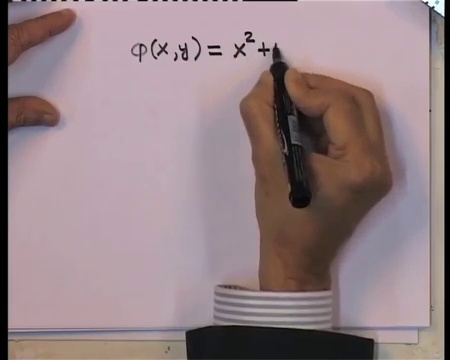 φ(x,y) = x² +